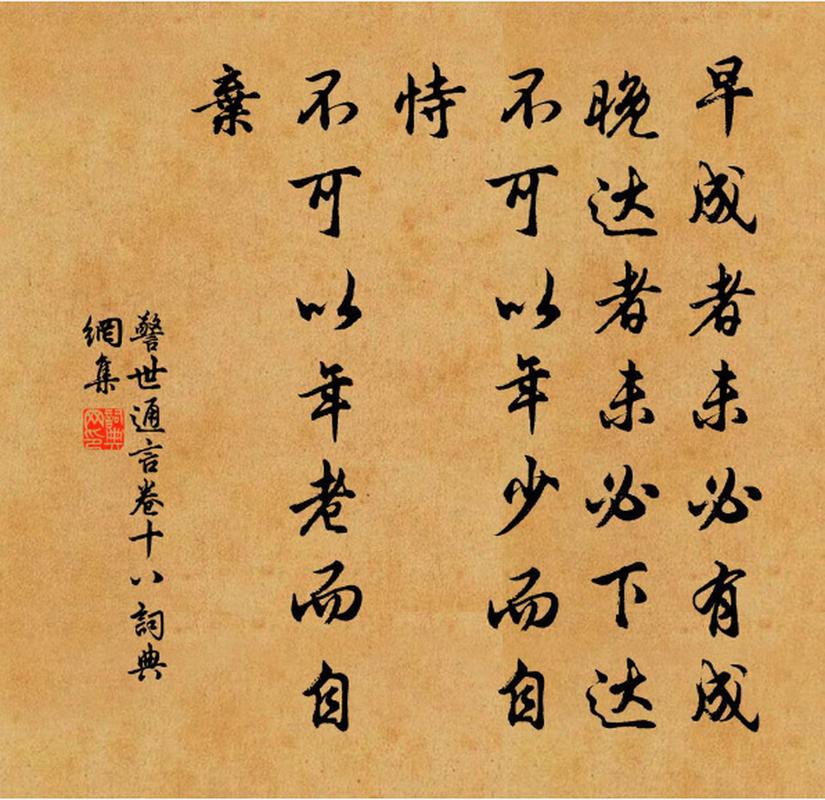 早成者未必有成
晚达者未必下达
不可以年少而自
恃
不可以年老而自
棄
警世通言卷十八 詞典
網集
詞典
网印